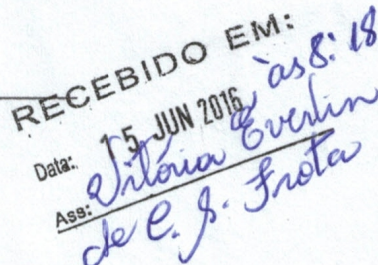 RECEBIDO EM:
Data: 15 JUN 2016 às 8:18
Ass: Vitória Evertin
de C. S. Frota